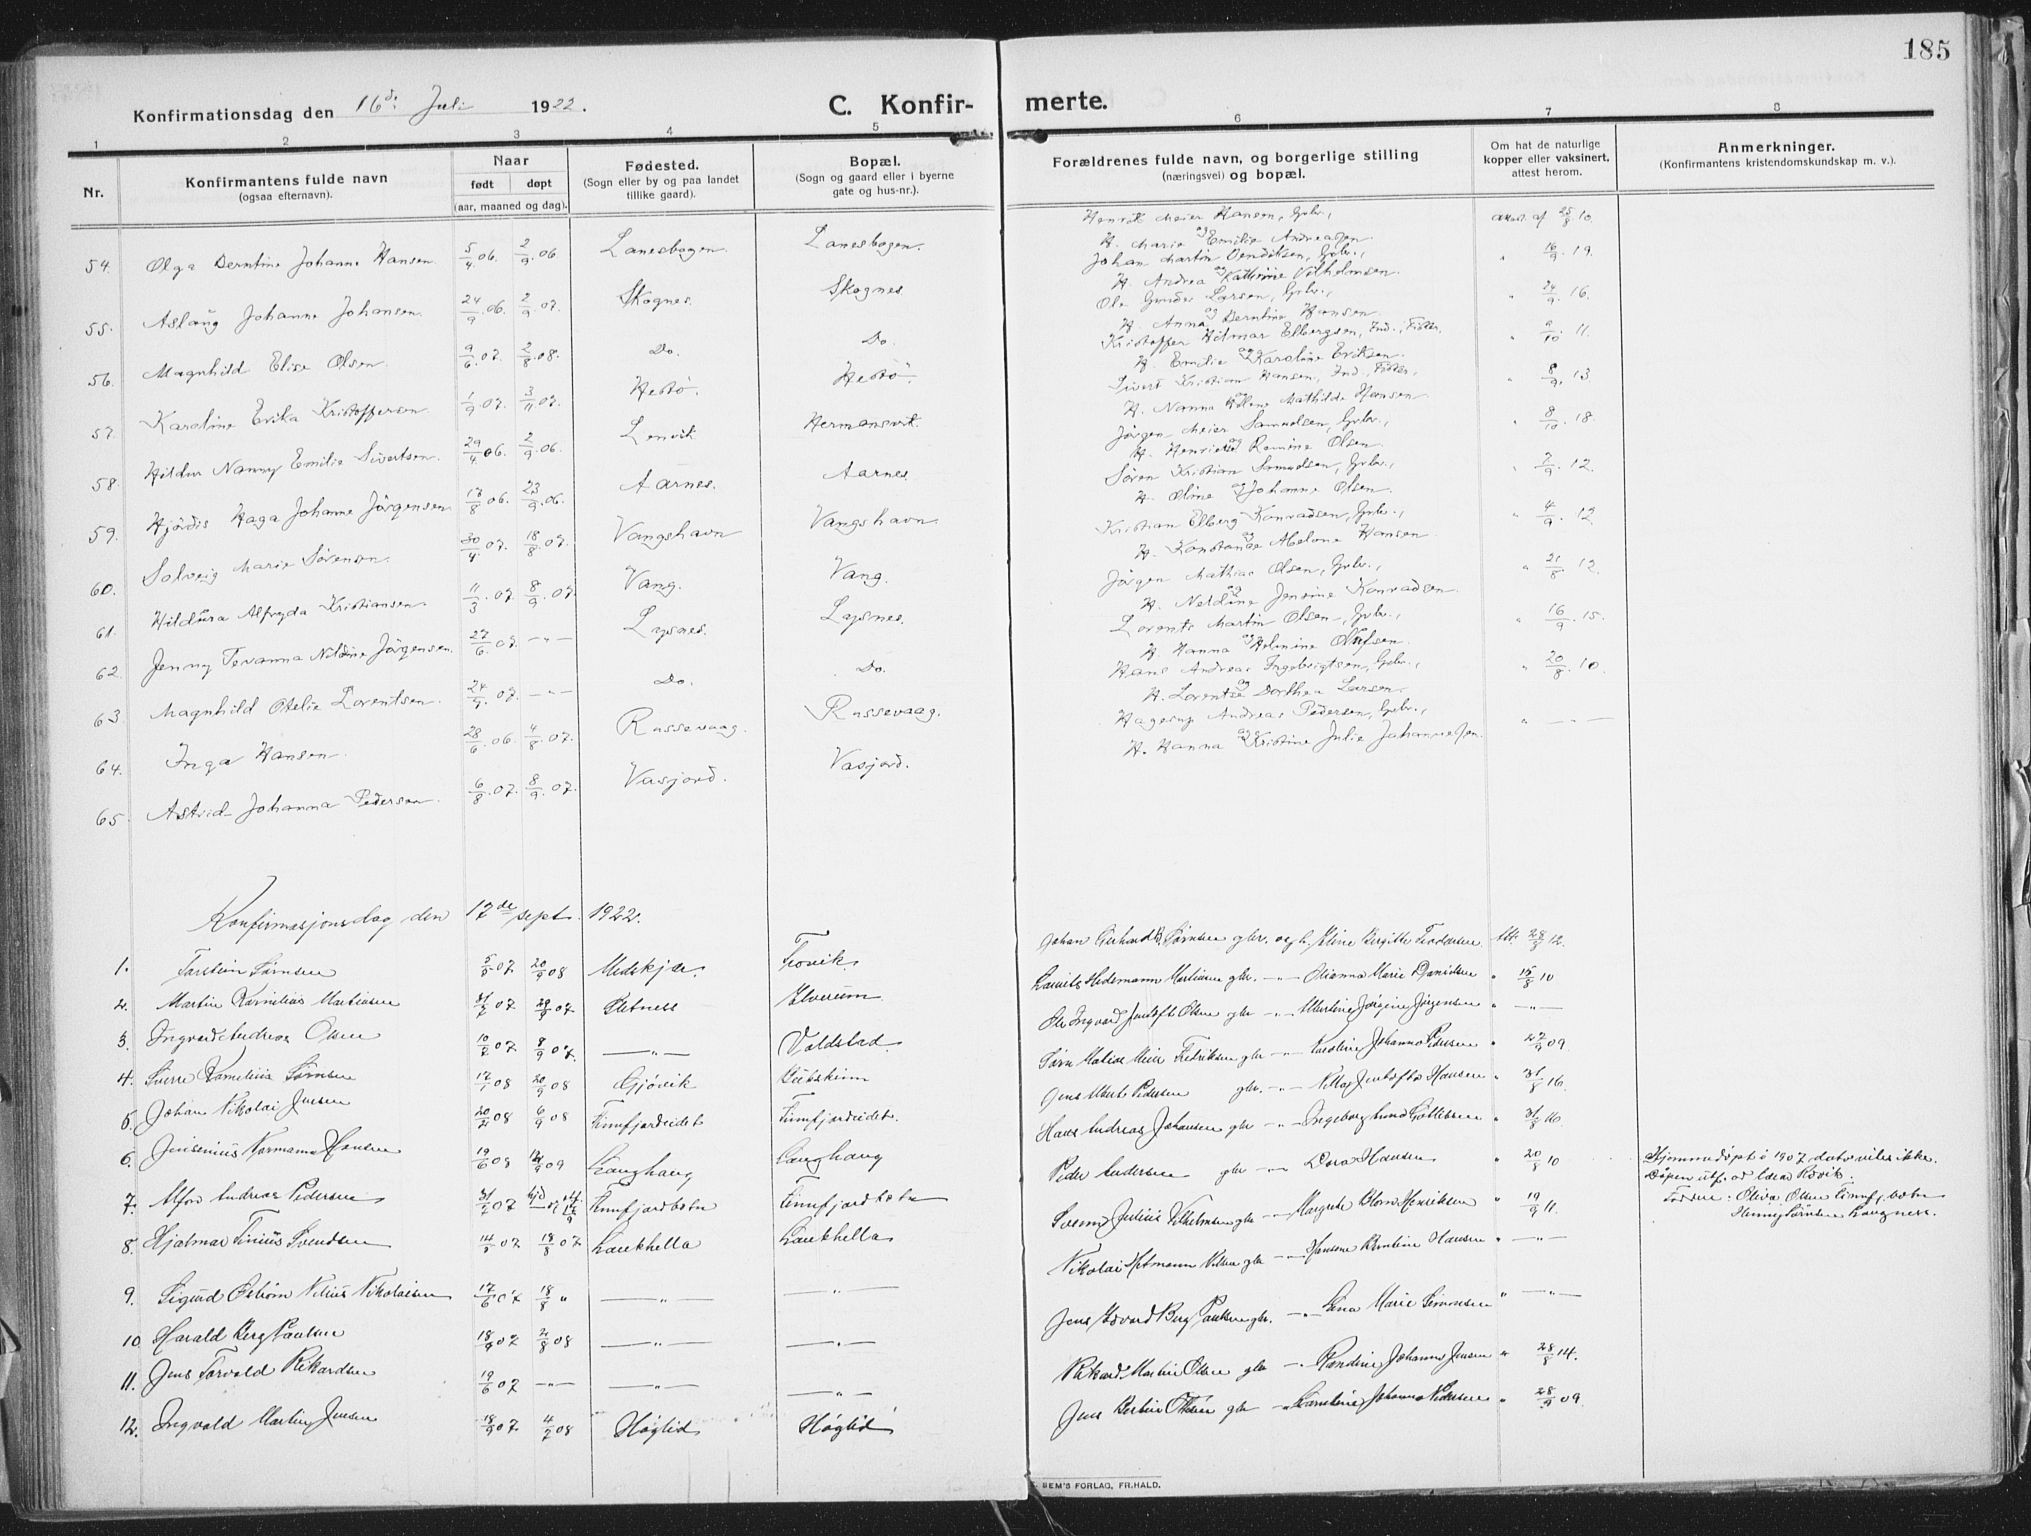 185
Konfirmationsdag den 16de Juli 1922. C. Konfir- merte.
1 2 3 4 5 6 7 8
Nr. Konfirmantens fulde navn (ogsaa efternavn). Naar født døpt (aar, maaned og dag). Fødested. (Sogn eller by og paa landet tillike gaard). Bopæl. (Sogn og gaard eller i byerne gate og hus-nr.). Forældrenes fulde navn, og borgerlige stilling (næringsvei) og bopæl. Om hat de naturlige kopper eller vaksinert, attest herom. Anmerkninger. (Konfirmantens kristendomskundskap m. v.).
54. Olga Berntine Johanne Hansen 5/4 06. 2/9 06 Lanesbogen Lanesbogen. Henrik Meier Hansen, Gbr., H. Marie og Emilie Andreassen attest af 25/8 10.
55. Aslaug Johanne Johansen 24/9 06. 2/9 07. Skognes. Skognes Johan Martin Bendiksen, Gbr., H. Andrea og Kathrine Vilhelmsen. " 16/9 19.
56. Magnhild Elise Olsen 9/6 07. 2/8 08. Do. Do. Ole Gunder Larsen, Gbr., H. Anna og Berntine Hansen " 24/9 16.
57. Karoline Erika Kristoffersen 1/9 07. 3/11 07. Hestö. Hestö. Kristoffer Hilmar Elbergsen, Ind., Fisker, H. Emilie og Karoline Eriksen. " 9/10 11.
58. Hildur Nanny Emilie Sivertsen. 29/4 06. 2/9 06. Lenvik Hermansvik. Sivert Kristian Hansen, Ind., Fisker, H. Nanna Mathilde Hansen " 8/9 13
59. Hjördis Haga Johanne Jörgensen 17/8 06. 23/9 06. Aarnes. Aarnes. Jörgen Meier Samuelsen, Gbr., H. Henrietta og Romine Olsen. " 8/10 18.
60. Solveig Marie Sörensen. 30/4 07. 18/8 07. Vangshavn Vangshavn Sören Kristian Samuelsen, Gbr., H. Oline og Johanne Olsen. " 7/9 12.
61. Hildura Alfryda Kristiansen. 11/3 07. 8/9 07. Vang. Vang. Kristian Elberg Konradsen, Gbr., H. Konstanse og Abelone Hansen " 4/9 12.
62. Jenny Tevanna Neldine Jörgensen. 27/6 07. — " — Lysnes. Lysnes. Jörgen Mathias Olsen, Gbr., H. Neldine og Jensine Konradsen. " 21/8 12.
63. Magnhild Otelie Lorentsen. 24/9 07. — " — Do. Do. Lorents Martin Olsen, Gbr., H. Hanna og Helmine Olufsen. " 16/9 15.
64. Inga Hansen. 28/6 06. 4/8 07. Rossevaag. Rossevaag. Hans Andreas Ingebrigtsen, Gbr., H. Lorentse og Dorthea Larsen. " 20/8 10.
65. Astrid Johanna Pedersen. 6/8 07. 8/9 07. Vasjord. Vasjord. Hagerup Andreas Pedersen, Gbr., H. Hanna og Kristine Julie Johannessen. " — " —
Konfirmasjonsdag den 17de sept. 1922.
1. Torstein Sørnsen 5/9 07 20/9 08 Medskjær Trovik. Johan Gerhard Sørnsen gbr. og h. Birgitte Teodorsen Att. 28/8 12.
2. Martin Kornelius Martinsen 31/7 07 07 Fletness Elverum Laurits Hedemann Martinsen gbr. — " — Olianna Marie Danielsen " 15/8 10
3. Ingvard Andreas Olsen 10/7 07 8/9 07. — " — Voldstad. Ole Ingvard Olsen gbr — " — Martine Jørgine Jørgensen " — " —
4. Sverre Kornelius Sørnsen 17/1 08 20/9 08 Gjøvik Sørn Matias Meier Fredriksen gbr — " — Karoline Johanna Pedersen " 27/9 09.
5. Johan Nikolai Jensen 20/2 08 6/9 08 Finnfjordeidet Finnfjordeidet. Jens Albert Pedersen gbr. — " — Hansen " 31/8 16.
6. Jensenius Normann Hansen 19/6 08 09 Langhaug Langhaug Hans Andreas Johansen gbr — " — Ingeborg " 31/8 16.
7. Alfon Andreas Pedersen 31/7 07 hjd Finnfjordbotn Finnfjordbotn Peder Andersen gbr — " — Dora Hansen " 20/8 10 Hjemmedøpt i 1907 dato vites ikke.
Dåpen utf. av
Faddere: Oliva Olsen Finnfj. botn
Henrig Sørnsen Langness.
8. Hjalmar Tinius Svendsen 14/8 07 18/8 07 Laukhella Laukhella Svend Julius Vilhelmsen gbr — " — Margrete Henriksen " 19/9 11.
9. Sigurd Østrøm Nilius Nikolaisen 17/6 07 18/8 " — " — — " — Nikolai Hetmann Nilsen gbr — " — Hansine Berntine Hansen " — " —
10. Harald Berg Paulsen 18/9 07 2/8 08 — " — — " — Jens Edvard Berg Paulsen gbr. — " — Lina Marie Simonsen " — " —
11. Jens Torvald Rikardsen 19/6 07 — " — — " — — " — Rikard Martin Olsen gbr — " — Johanna Jensen " 28/8 14.
12. Ingvald Martin Jensen 18/9 07 4/7 08 Høglid Høglid Jens Olsen gbr — " — Johanna Pedersen " 28/9 09.
BEM'S FORLAG, FR.HALD.